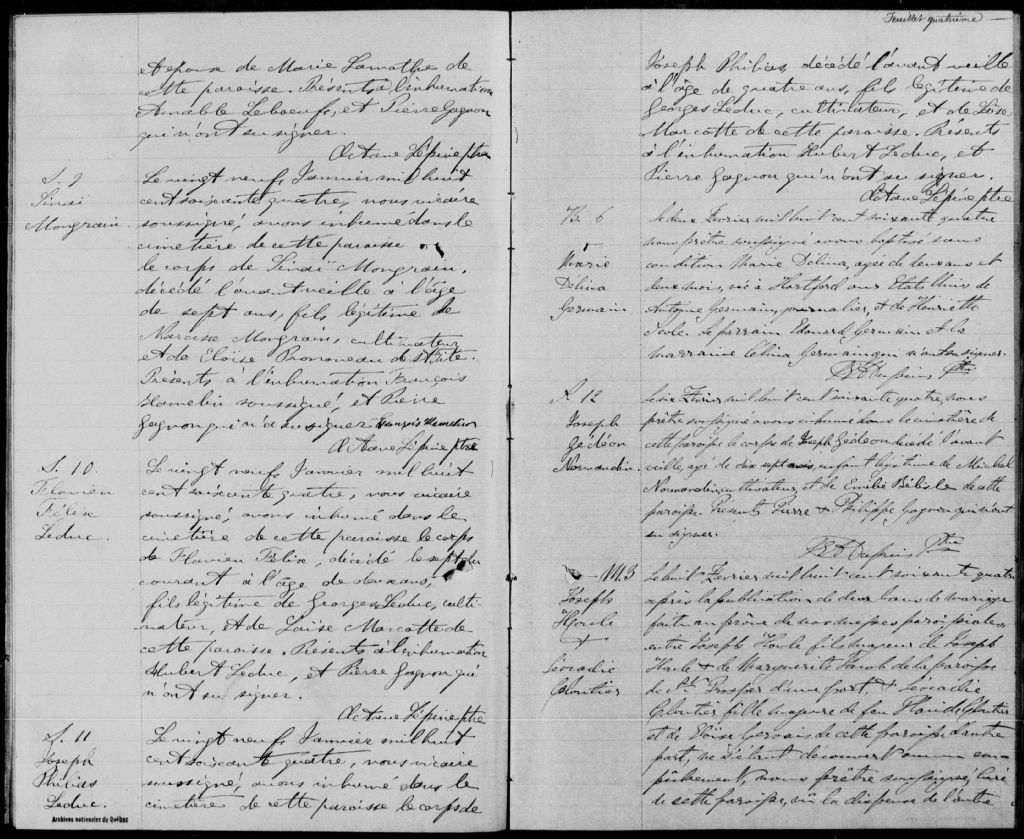 et epoux de Marie Lamothe de
cette paroisse. Présents à l'inhumation
Amable Leboeuf, et Pierre Gagnon
qui n'ont su signer.
Octave Lépine ptre
S. 9
Sinaï
Mongrain.
Le vingt neuf, Janvier mil huit
cent soixante quatre, nous vicaire
soussigné, avons inhumé dans le
cimetière de cette paroisse
le corps de Sinaï Mongrain,
décédé l'avant veille à l'âge
de sept ans, fils légitime de
Narcisse Mongrain, cultivateur
et de Eloïse de St Tite.
Présents à l'inhumation François
Hamelin soussigné, et Pierre
Gagnon qui n'a su signer François Hamelin
Octave Lépine ptre
S. 10
Flavien
Félix
Leduc.
Le vingt neuf, Janvier mil huit
cent soixante quatre, nous vicaire
soussigné, avons inhumé dans le
cimetière de cette paroisse le corps
de Flavien Félix, décédé le sept du
courant à l'âge de deux ans,
fils légitime de Georges Leduc, culti-
vateur, et de Louise Marcotte de
cette paroisse. Présents à l'inhumation
Hubert Leduc, et Pierre Gagnon qui
n'ont su signer.
Octave Lépine ptre
S. 11
Joseph
Philias
Leduc.
Le vingt neuf, Janvier mil huit
cent soixante quatre, nous vicaire
soussigné, avons inhumé dans le
cimetière de cette paroisse le corps de
Archives nationales du Québec
Feuillet quatrième
Joseph Philias, décédé l'avant veille
à l'âge de quatre ans, fils légitime de
Georges Leduc, cultivateur, et de Loïse
Marcotte de cette paroisse. Présents
à l'inhumation Hubert Leduc, et
Pierre Gagnon qui n'ont su signer.
Octave Lépine ptre
B. 6
Marie
Délina
Germain
Février mil huit cent soixante quatre
nous prêtre soussigné avons baptisé sous
condition Marie Délina, agée de deux ans et
deux mois, née à Hartford aux Etats Unis de
Antoine Germain, journalier, et de Henriette
Le parrain Edouard Germain et la
marraine Célina Germain qui n'ont su signer.
Ptre
S. 12
Joseph
Gédéon
Normandin
Le six Février mil huit cent soixante quatre, nous
prêtre soussigné avons inhumé dans le cimetière de
cette paroisse le corps de Joseph Gédéon décédé l'avant
veille, agé de dix sept mois, enfant légitime de Michel
Normandin, cultivateur, et de Emilie Bélisle de cette
paroisse Présents Pierre & Philippe Gagnon qui n'ont
su signer.
Ptre
M. 3
Joseph
Houle
&
Léocadie
Cloutier
Le huit Février mil huit cent soixante quatre
après la publication de deux bans de mariage
faite au prône de nos messes paroissiales
entre Joseph Houle fils majeur de Joseph
Houle & de Marguerite Jacob de la paroisse
de St. Prosper d'une part, & Léocadie
Cloutier fille majeure de feu Cloutier
et de Gervais de cette paroisse d'autre
part, ne s'étant découvert aucun em-
pêchement, nous prêtre soussigné, curé
de cette paroisse, vû la dispense de l'autre